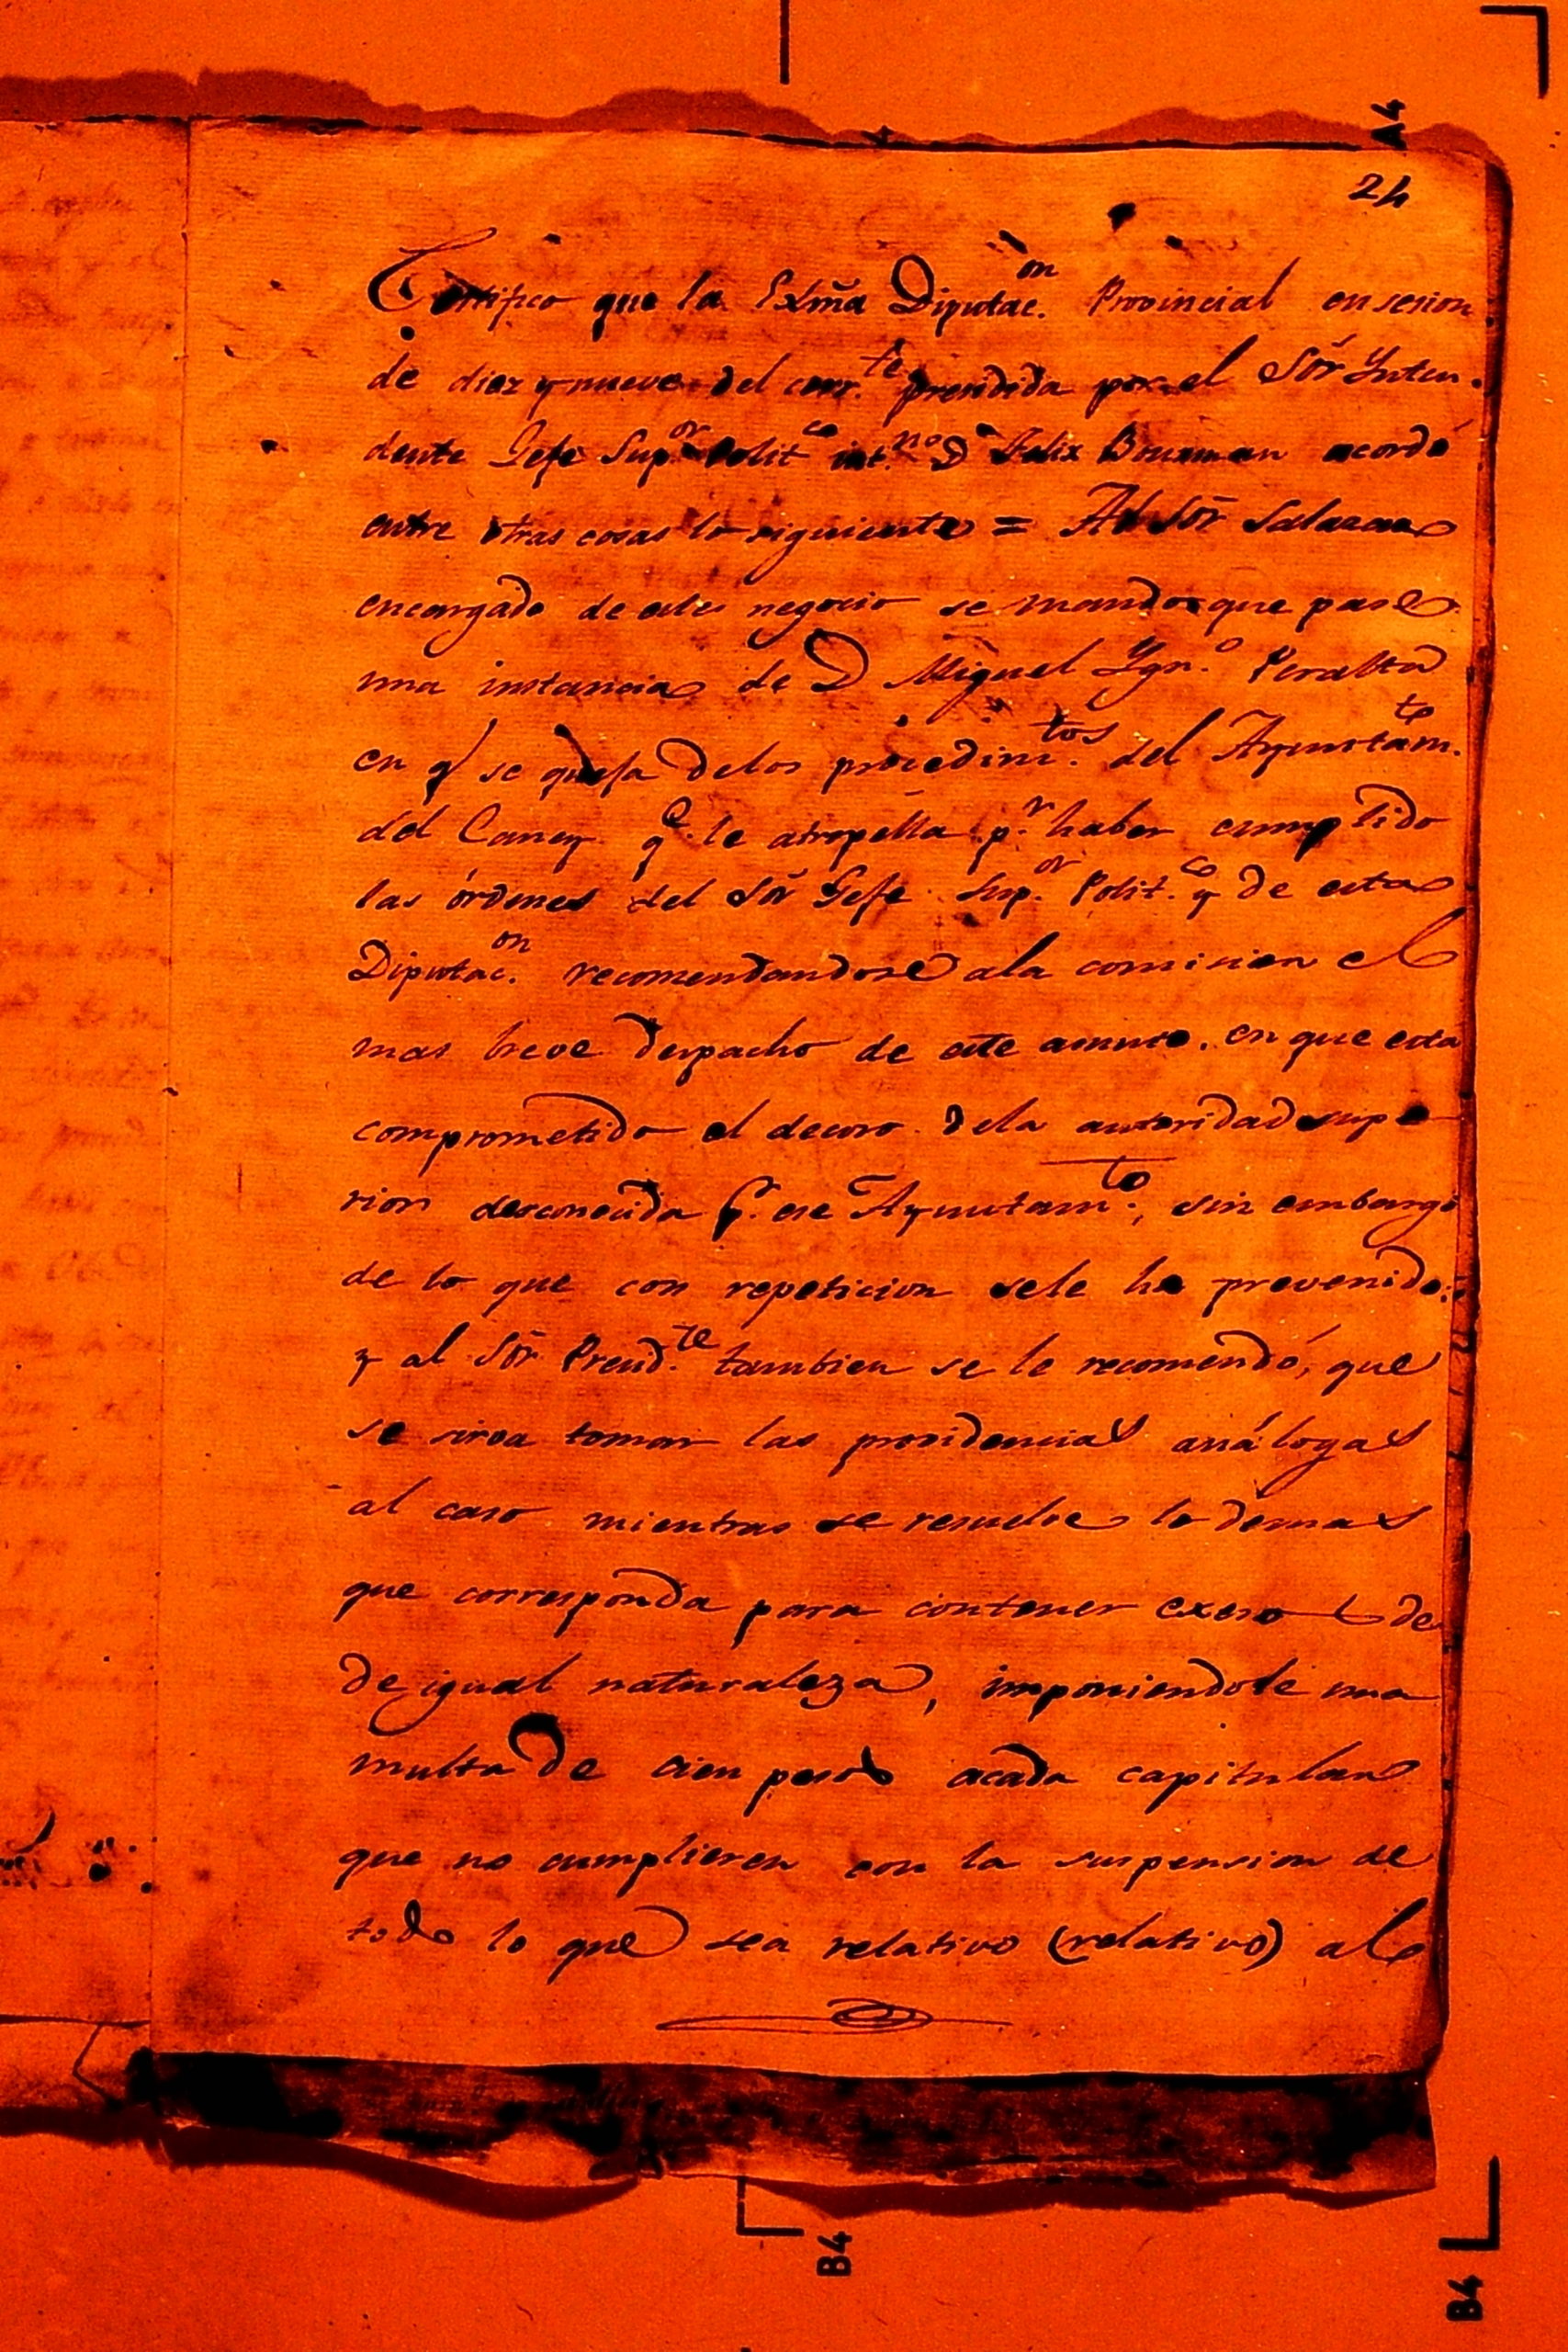 A4
24
Certifico que la Exma Diputac.on Provincial en sesion
de diez y nueve del corr.te presidida por el Sor Ynten-
dente Gefe Sup.or Polit.co int.no D Felix Bouman acordó
entre otras cosas lo siguiente = Al Sor Salazar
encargado de este negocio se mandó que pase
una instancia de D Miguel Ygn.o Peralta
en q se queja delos procedim.tos del Ayuntam.to
del Caney q.e le atropella p.r haber cumplido
las órdenes del Sor Gefe Sup.or Polit.co y de esta
Diputac.on recomendandose ala comision el
mas breve despacho de este asunto, en que esta
comprometido el decoro dela autoridad supe
rior desconocida p.r ese Ayuntam.to, sin embargo
de lo que con repeticion sele ha prevenido:
y al Sor Presid.te tambien se le recomendó, que
se sirva tomar las providencias análogas
al caso mientras se resuelve lo demas
que corresponda para contener exeso de
de igual naturaleza, imponiendole una
multa de cien pesos acada capitular
que no cumplieren con la suspension de
todo lo que sea relativo (relativo) al
B4
B4